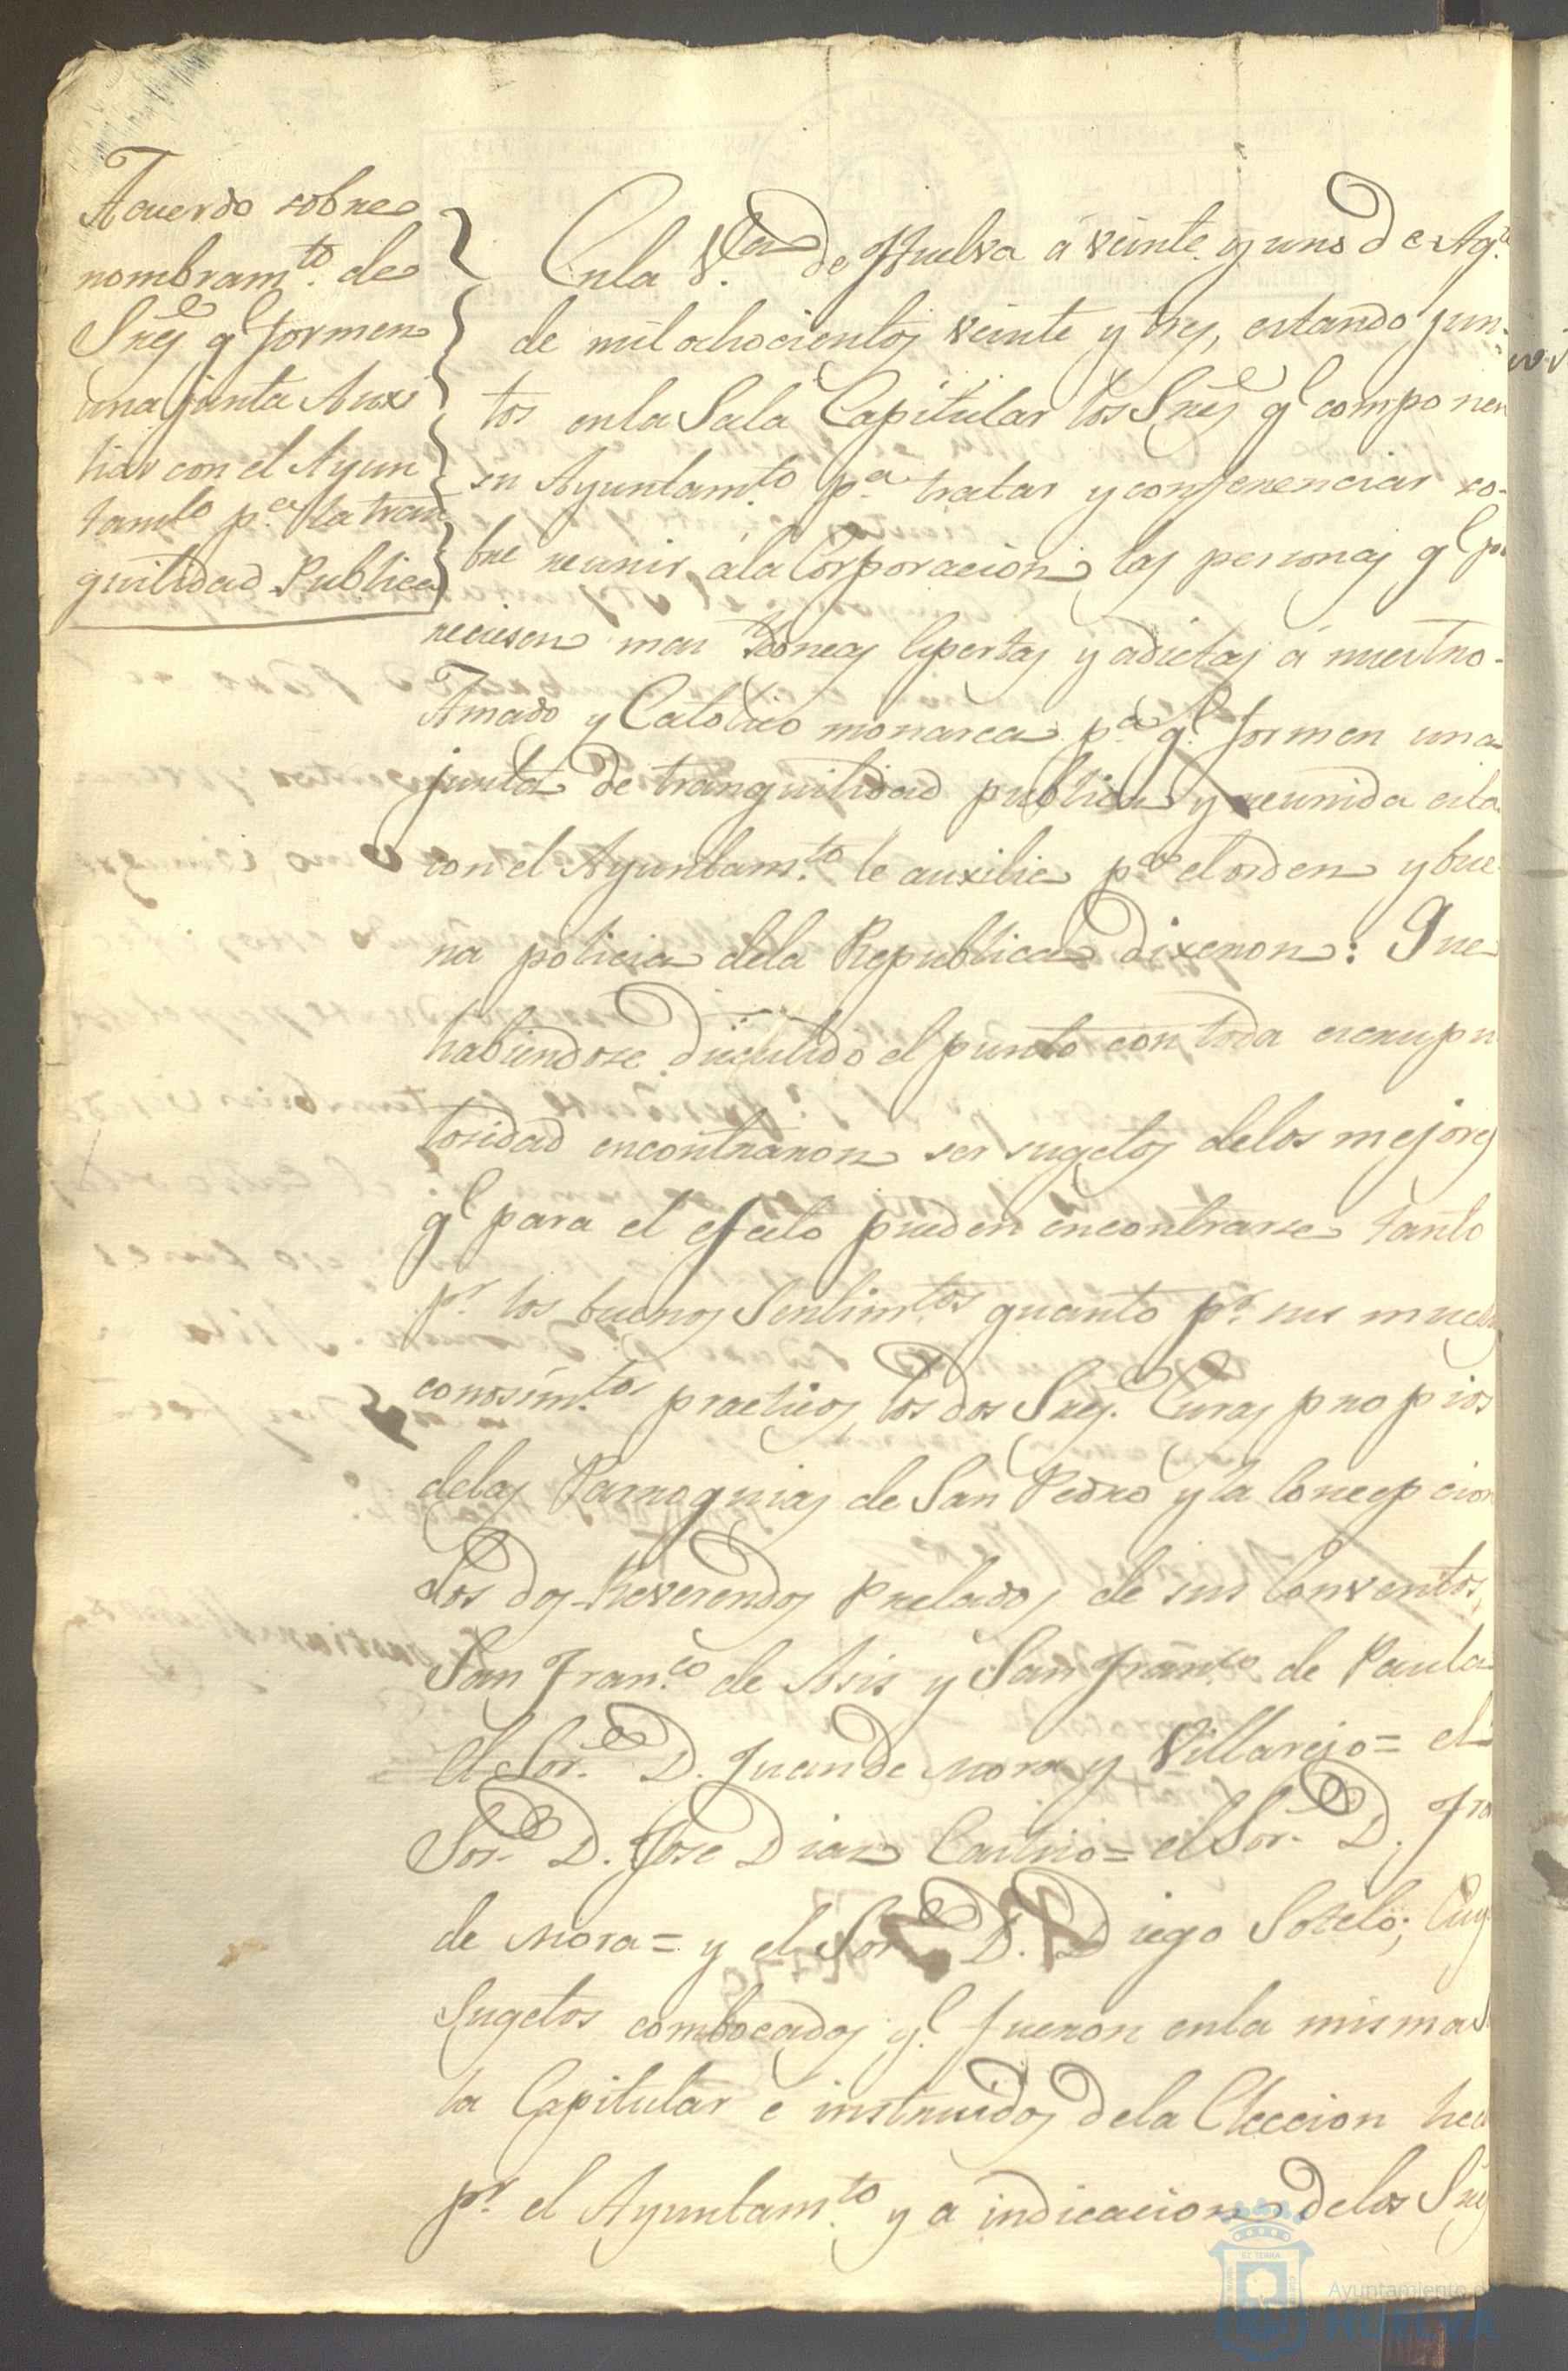 Acuerdo sobre
nombram.to de
Sres q.e formen
una junta Auxi
liar con el Ayun
tam.to p.a la tran
quilidad Publica
En la V.a de Huelva á veinte y uno de Ag.to
de mil ochocientos veinte y tres, estando jun-
tos en la Sala Capitular los Sres q.e componen
su Ayuntam.to p.a tratar y conferenciar so-
bre reunir á la Corporacion las personas q.e pa
reciesen mas Ydoneas Espertas y adictas á nuestro
Amado y Catolico monarca p.a q.e formen una
junta de tranquilidad publica y reunida esta
con el Ayuntam.to le auxilie p.a el orden y bue-
na policia dela Republica Dixeron: Que
habiendose discutido el punto con toda escrupu
losidad encontraron ser sugetos delos mejores
q.e para el efecto pueden encontrarse tanto
p.r los buenos Sentim.tos quanto p.r sus muchos
conosim.tos practicos los dos Sres. Curas propios
delas Parroquias de San Pedro y la Concepcion
Los dos Reverendos Prelados de sus Conventos
San Fran.co de Asis y San Fran.co de Paula
el Sor. D. Juan de Mora y Villarejo= el
Sor. D. Jose Diaz Cantino= el Sor. D. Fra
de Mora= y el Sor. D. Diego Sotelo; Cuy
Sugetos combocados q.e fueron enla misma Sa
la Capitular e instruidos dela Eleccion hec
p.r el Ayuntam.to y a indicacion delos Sres
Ayuntamiento de
HUELVA